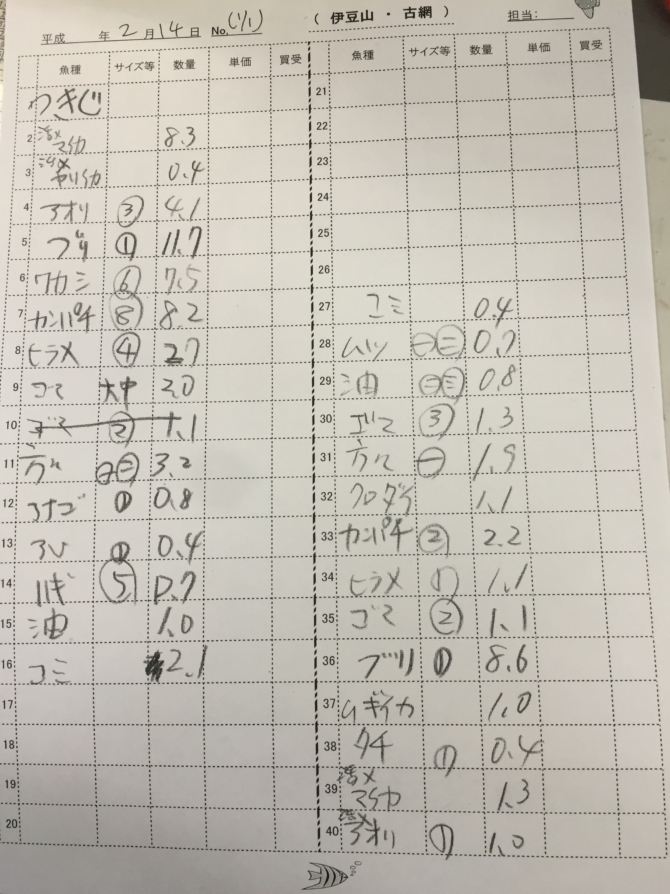 平成 年 2 月 14 日 No. (1/1) ( 伊豆山 ・ 古網 ) 担当:
魚種 サイズ等 数量 単価 買受
つきじ
2 活〆 マイカ 8.3
3 活〆 ヤリイカ 0.4
4 アオリ ③ 4.1
5 ブリ ① 11.7
6 ワカシ ⑥ 7.5
7 カンパチ ⑧ 8.2
8 ヒラメ ④ 2.7
9 ゴマ 大中 2.0
10 ゴマ ② 1.1
11 3.2
12 アナゴ ① 0.8
13 ① 0.4
14 ⑤ 0.7
15 油 1.0
16 コミ 2.1
17
18
19
20
魚種 サイズ等 数量 単価 買受
21
22
23
24
25
26
27 コミ 0.4
28 ムツ ㊀㊂ 0.7
29 油 ㊀㊂ 0.8
30 ゴマ ③ 1.3
31 ㊀ 1.9
32 クロダイ 1.1
33 カンパチ ② 2.2
34 ヒラメ ① 1.1
35 ゴマ ② 1.1
36 ブリ ① 8.6
37 ムギイカ 1.0
38 クチ ① 0.4
39 活〆 マイカ 1.3
40 活〆 アオリ ① 1.0